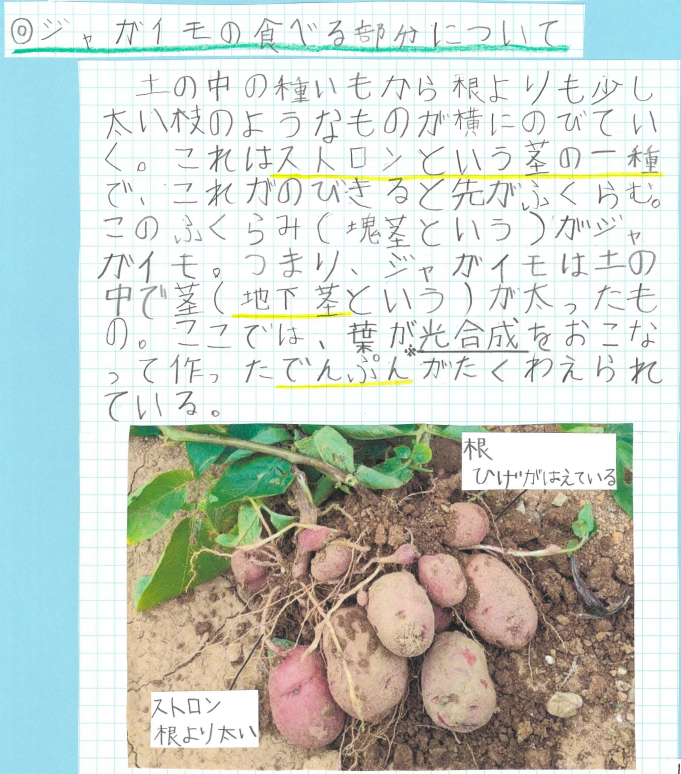 ◎ジャガイモの食べる部分について
土の中の種いもから根よりも少し
太い枝のようなものが横にのびてい
く。これはストロンという茎の一種
で、これがのびきると先がふくらむ。
このふくらみ(塊茎という)がジャ
ガイモ。つまり、ジャガイモは土の
中で茎(地下茎という)が太ったも
の。ここでは、葉が※光合成をおこな
って作ったでんぷんがたくわえられ
ている。
根
ひげがはえている
ストロン
根より太い